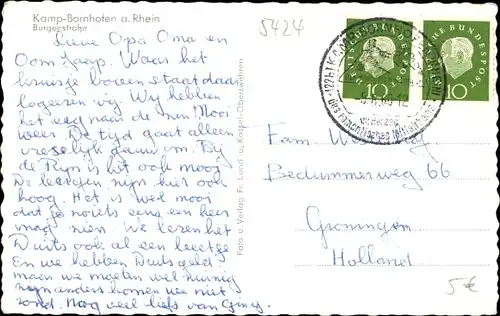 Kamp-Bornhofen a. Rhein
Burgenstraße
5424
Lieve Opa Oma en
Oom Jaap. Waar het
kruisje boven staat daar
logeeren wij. Wij hebben
het nog naar de zin. Mooi
weer. De tijd gaat alleen
vreselijk gauw om. Bij
de Rijn is het ook mooi
De bergen zijn hier ook
hoog. Het is wel mooi
dat je zoiets eens een keer
mag zien. We leren het
Duits ook al een beetje
En we hebben Duits geld
maar we moeten wel zuinig
zijn anders komen we niet
rond. Nog veel liefs van
Foto u. Verlag Fr. Lund u. Kassel-Oberzwehren
DEUTSCHE BUNDESPOST
10
BUNDESPOST
10
Fam
Bedummerweg 66
Groningen
Holland
5€